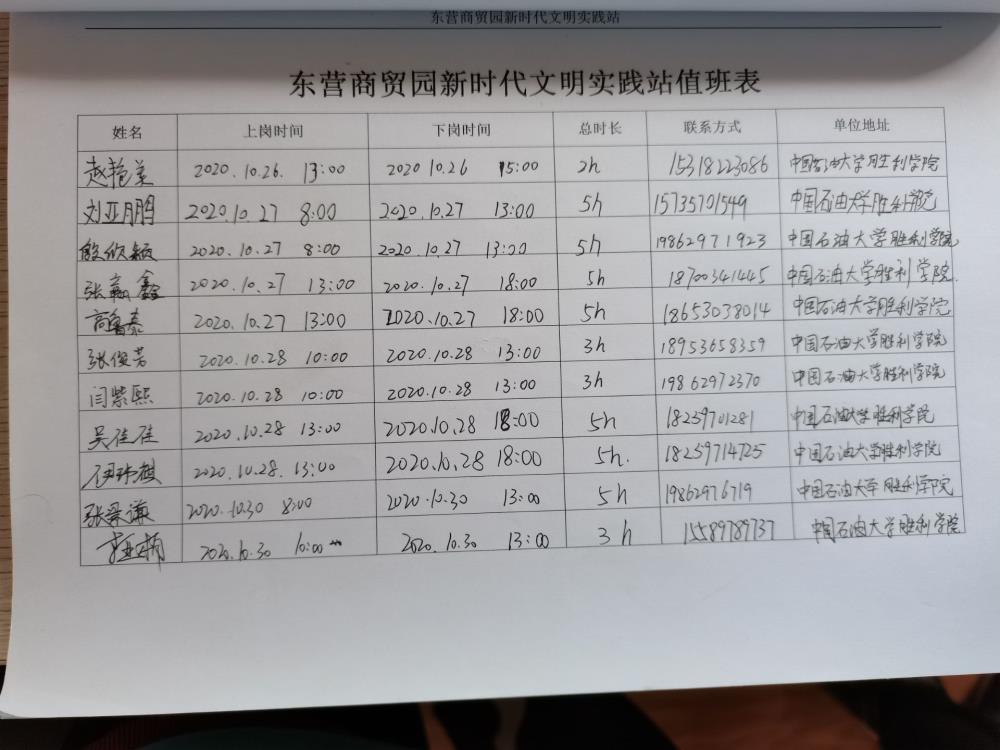 东营商贸园新时代文明实践站
东营商贸园新时代文明实践站值班表
姓名 上岗时间 下岗时间 总时长 联系方式 单位地址
赵艳美 2020.10.26. 13:00 2020 10.26 15:00 2h 15318223086 中国石油大学胜利学院
刘亚鹏 2020.10.27 8:00 2020.10.27 13:00 5h 15735701549 中国石油大学胜利学院
殷欣颖 2020.10.27 8:00 2020.10.27 13:00 5h 19862971923 中国石油大学胜利学院
张 鑫 2020.10.27 13:00 2020.10.27 18:00 5h 18700341445 中国石油大学胜利学院.
高鲁泰 2020.10.27 13:00 2020.10.27 18:00 5h 18653038014 中国石油大学胜利学院
张俊芳 2020.10.28 10:00 2020.10.28 13:00 3h 18953658359 中国石油大学胜利学院
闫紫熙 2020.10.28 10:00 2020.10.28 13:00 3h 19862972370 中国石油大学胜利学院
吴佳佳 2020.10.28 13:00 2020.10.28 18:00 5h 18259701281 中国石油大学胜利学院
伊 2020.10.28. 13:00 2020.10.28 18:00 5h. 18259714725 中国石油大学胜利学院
张 谦 2020.10.30 8:00 2020.10.30 13:00 5h 19862976719 中国石油大学胜利学院
李亚萌 2020.10.30 10:00 2020.10.30 13:00 3h 15589789737 中国石油大学胜利学院